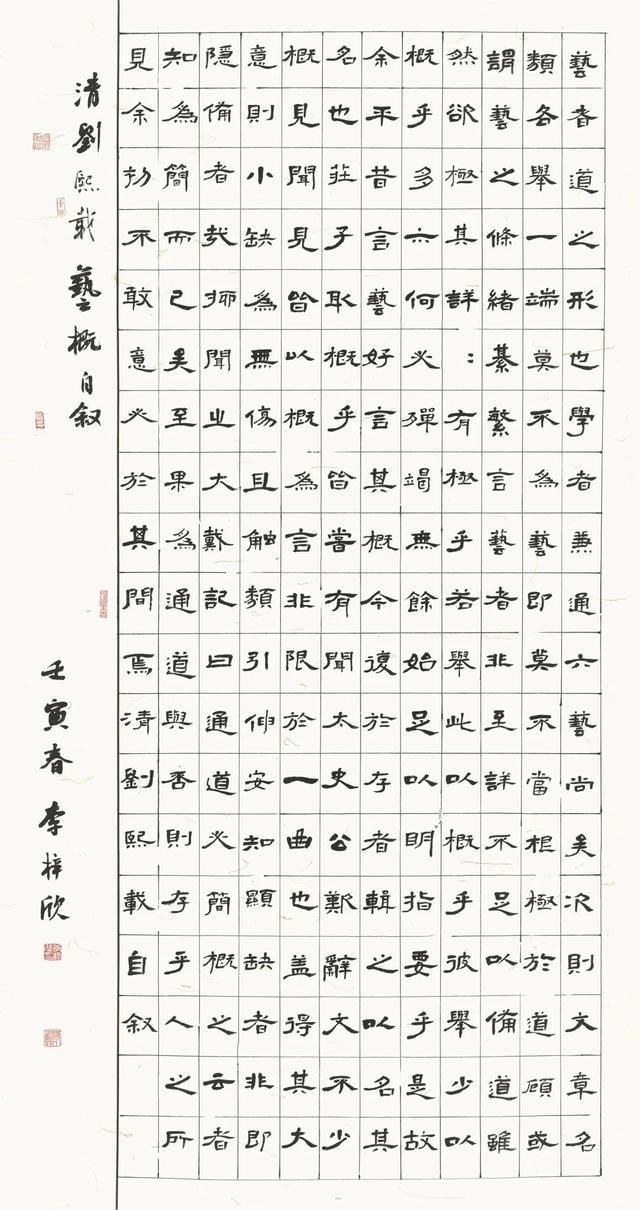 藝者道之形也學者兼通六藝尚矣次則文章名
類各舉一端莫不為藝即莫不當根極於道顧或
謂藝之條緒綦繁言藝者非至詳不足以備道雖
然欲極其詳：有極乎若舉此以概乎彼舉少以
概乎多亦何必殫竭無餘始足以明指要乎是故
余平昔言藝好言其概今復於存者輯之以名其
名也莊子取概乎皆嘗有聞太史公歎辭文不少
概見聞見皆以概為言非限於一曲也盖得其大
意則小缺為無傷且觸類引伸安知顯缺者非即
隱備者哉抑聞之大戴記曰通道必簡概之云者
知為簡而已矣至果為通道與否則存乎人之所
見余初不敢意必於其間焉清劉熙載自叙
清劉熙載藝概自叙
壬寅春李梓欣